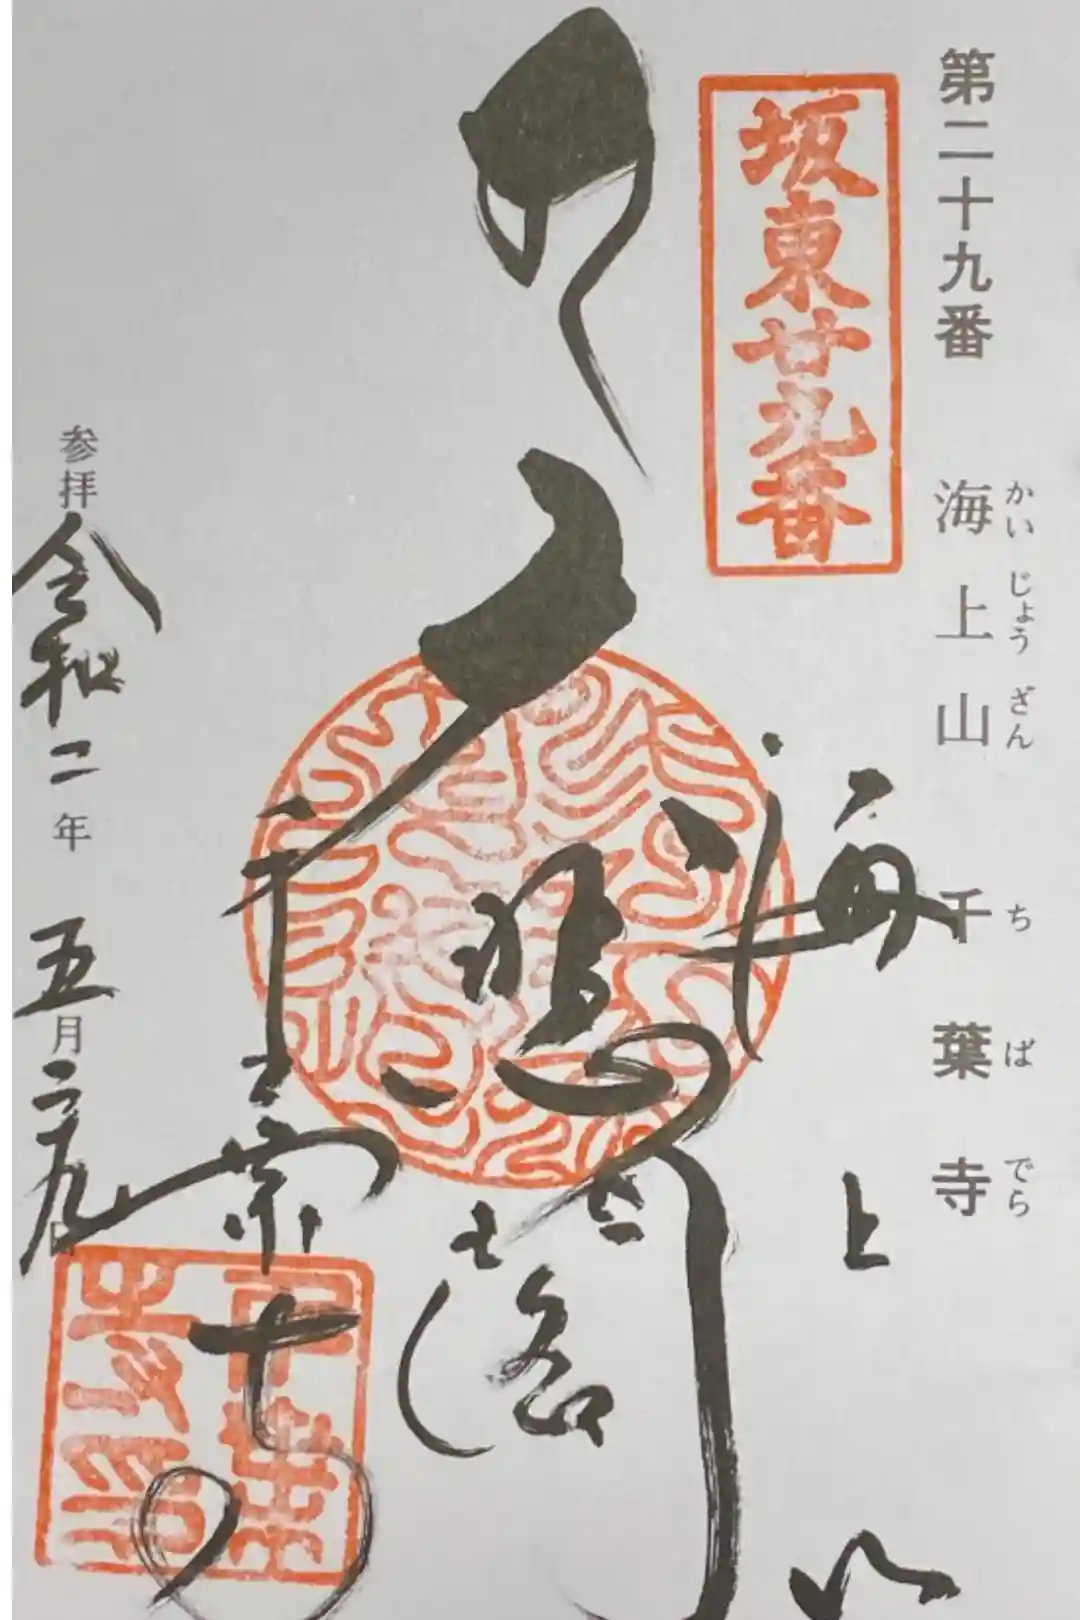 第二十九番　海上山　千葉寺
かいじょうざん　ちばでら
坂東廿九番
海上山
大悲閣
千葉寺
参拝 令和二年 五月二九日